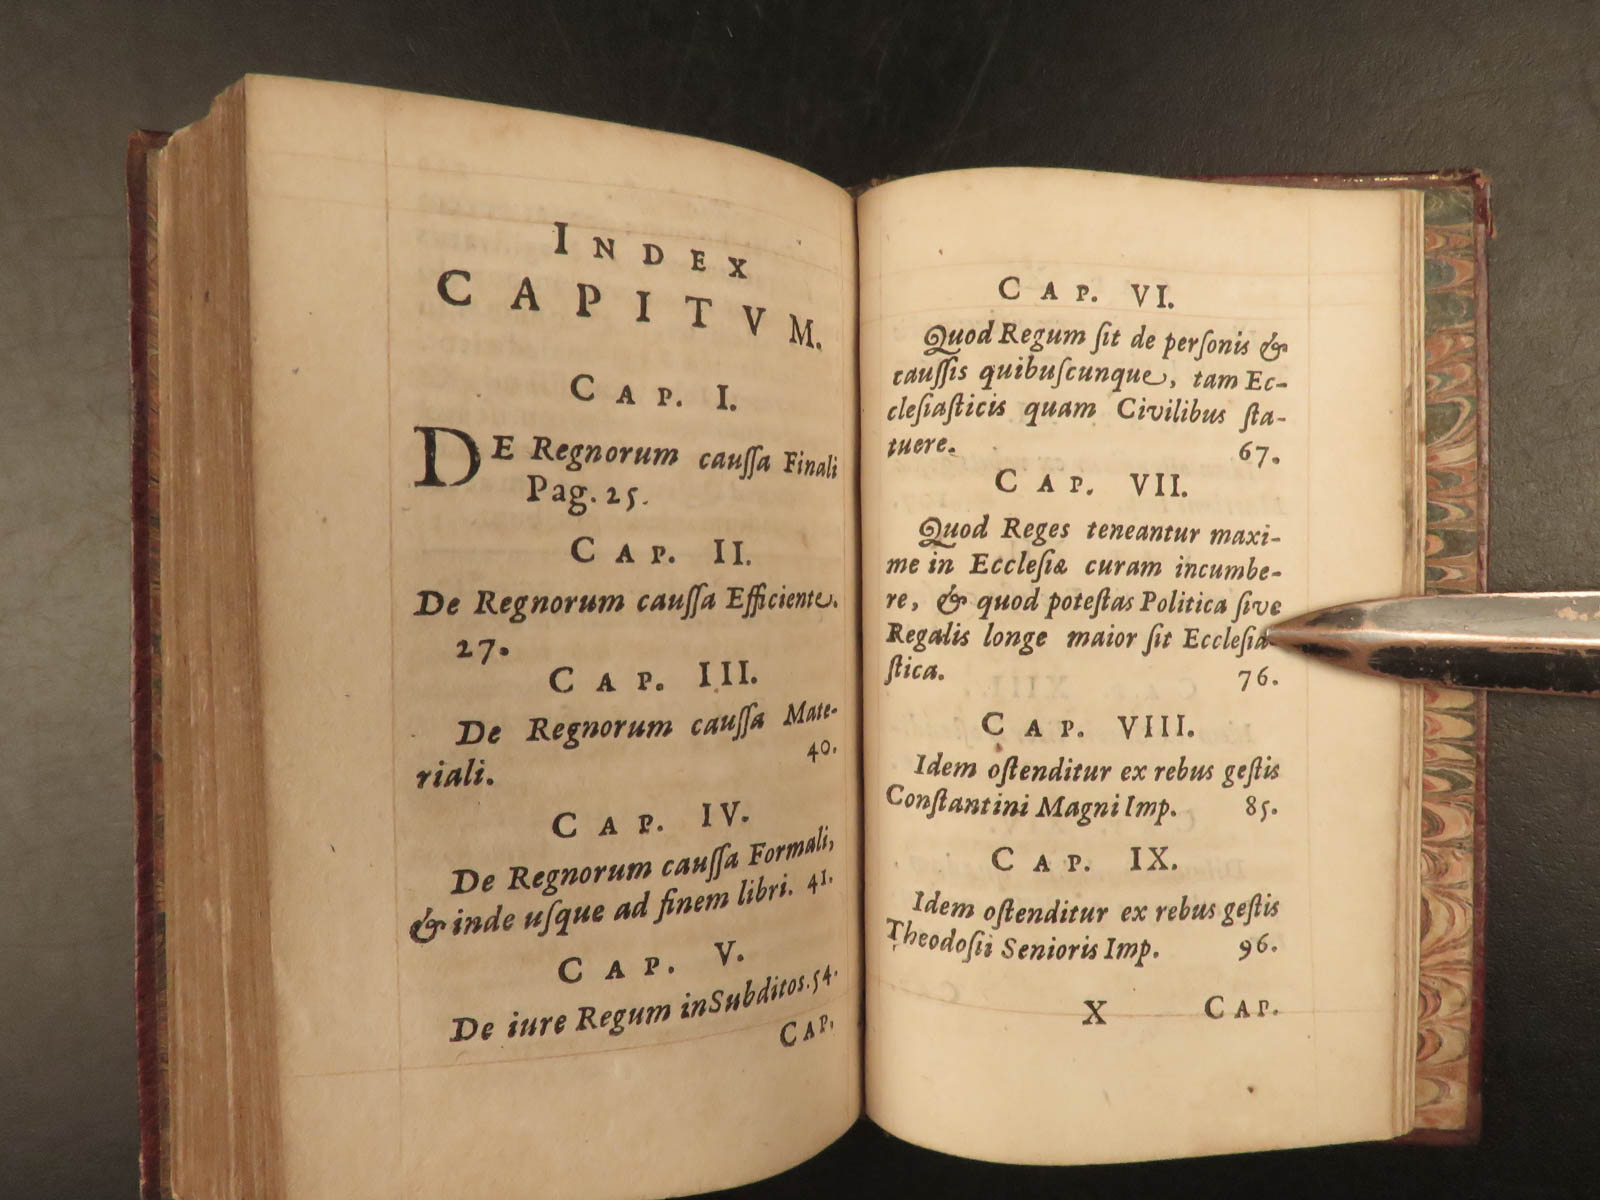 INDEX
CAPITVM.
CAP. I.
DE Regnorum cauſſa Finali
Pag. 25.
CAP. II.
De Regnorum cauſſa Efficiente.
27.
CAP. III.
De Regnorum cauſſa Mate-
riali. 40.
CAP. IV.
De Regnorum cauſſa Formali,
& inde uſque ad finem libri. 41.
CAP. V.
De iure Regum in Subditos. 54.
CAP.
CAP. VI.
Quod Regum ſit de perſonis &
cauſſis quibuſcunque, tam Ec-
cleſiaſticis quam Civilibus ſta-
tuere. 67.
CAP. VII.
Quod Reges teneantur maxi-
me in Eccleſiæ curam incumbe-
re, & quod poteſtas Politica ſive
Regalis longe maior ſit Eccleſia-
ſtica. 76.
CAP. VIII.
Idem oſtenditur ex rebus geſtis
Conſtantini Magni Imp. 85.
CAP. IX.
Idem oſtenditur ex rebus geſtis
Theodoſii Senioris Imp. 96.
X CAP.